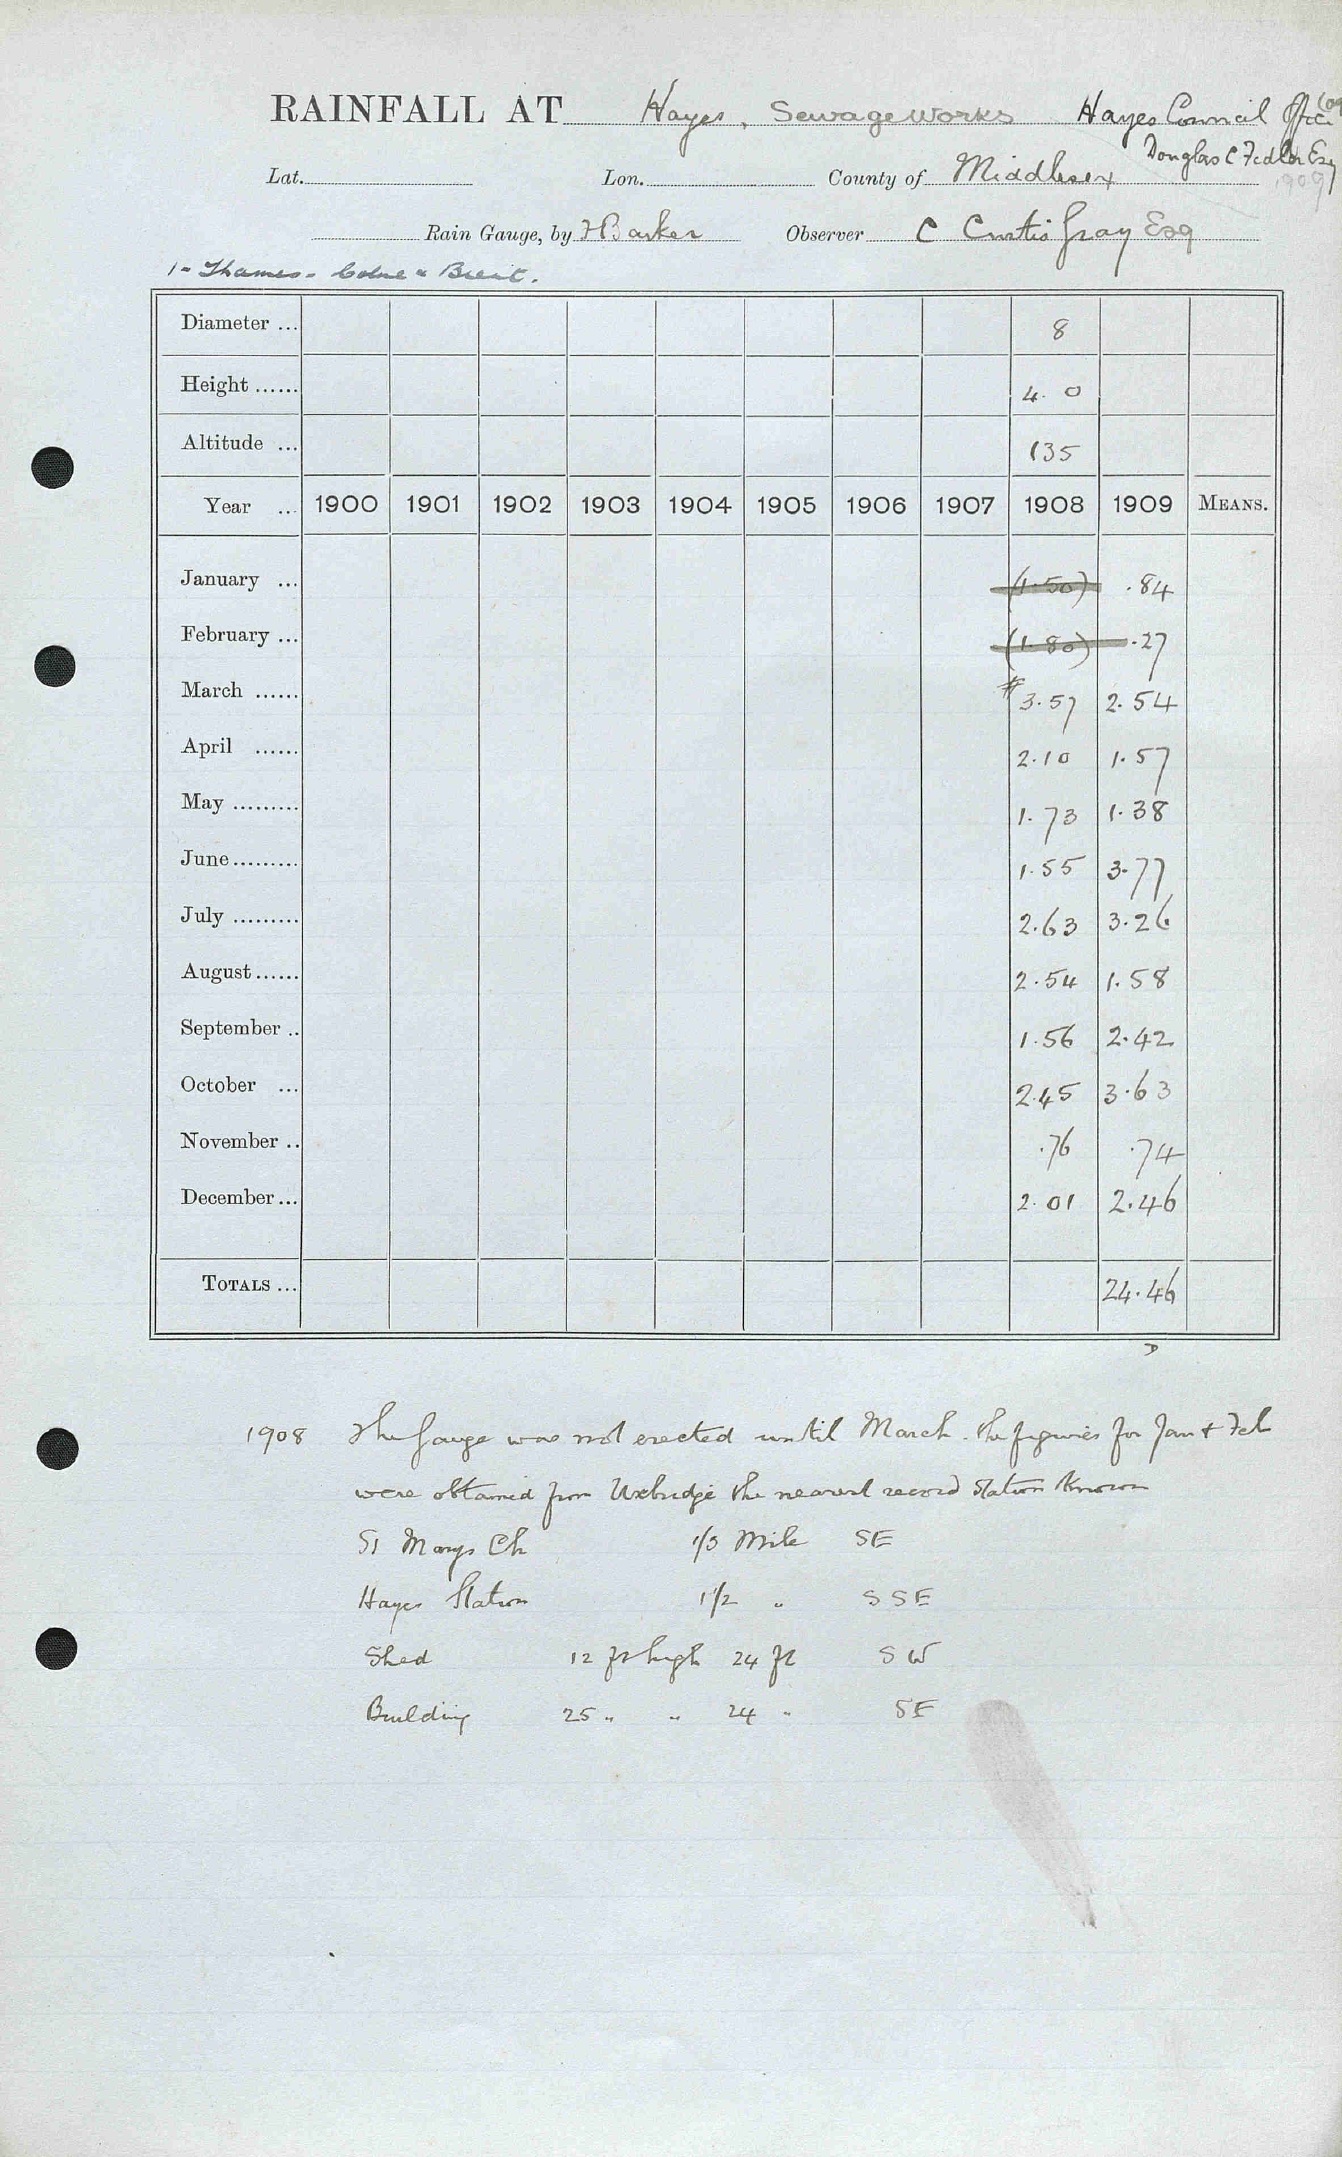 RAINFALL AT Hayes, Sewage Works Hayes Council Office
Douglas C Esq
Lat. Lon. County of Middlesex 1909
Rain Gauge, by Barker Observer C Curtis Gray Esq
1 - Thames - Colne & Brent.
Diameter ... 8
Height ...... 4. 0
Altitude ... 135
Year ... 1900 1901 1902 1903 1904 1905 1906 1907 1908 1909 MEANS.
January ... (1.50) .84
February ... (1.80) .27
March ...... # 3.57 2.54
April ...... 2.10 1.57
May ......... 1.73 1.38
June ......... 1.55 3.77
July ......... 2.63 3.26
August ...... 2.54 1.58
September .. 1.56 2.42
October ... 2.45 3.63
November .. .76 .74
December ... 2.01 2.46
TOTALS ... 24.46
1908 The Gauge was not erected until March. The figures for Jan & Feb
were obtained from Uxbridge the nearest record station known
St Marys Ch 1/3 Mile SE
Hayes Station 1 1/2 " SSE
Shed 12 ft high 24 ft SW
Building 25 " " 24 " SE